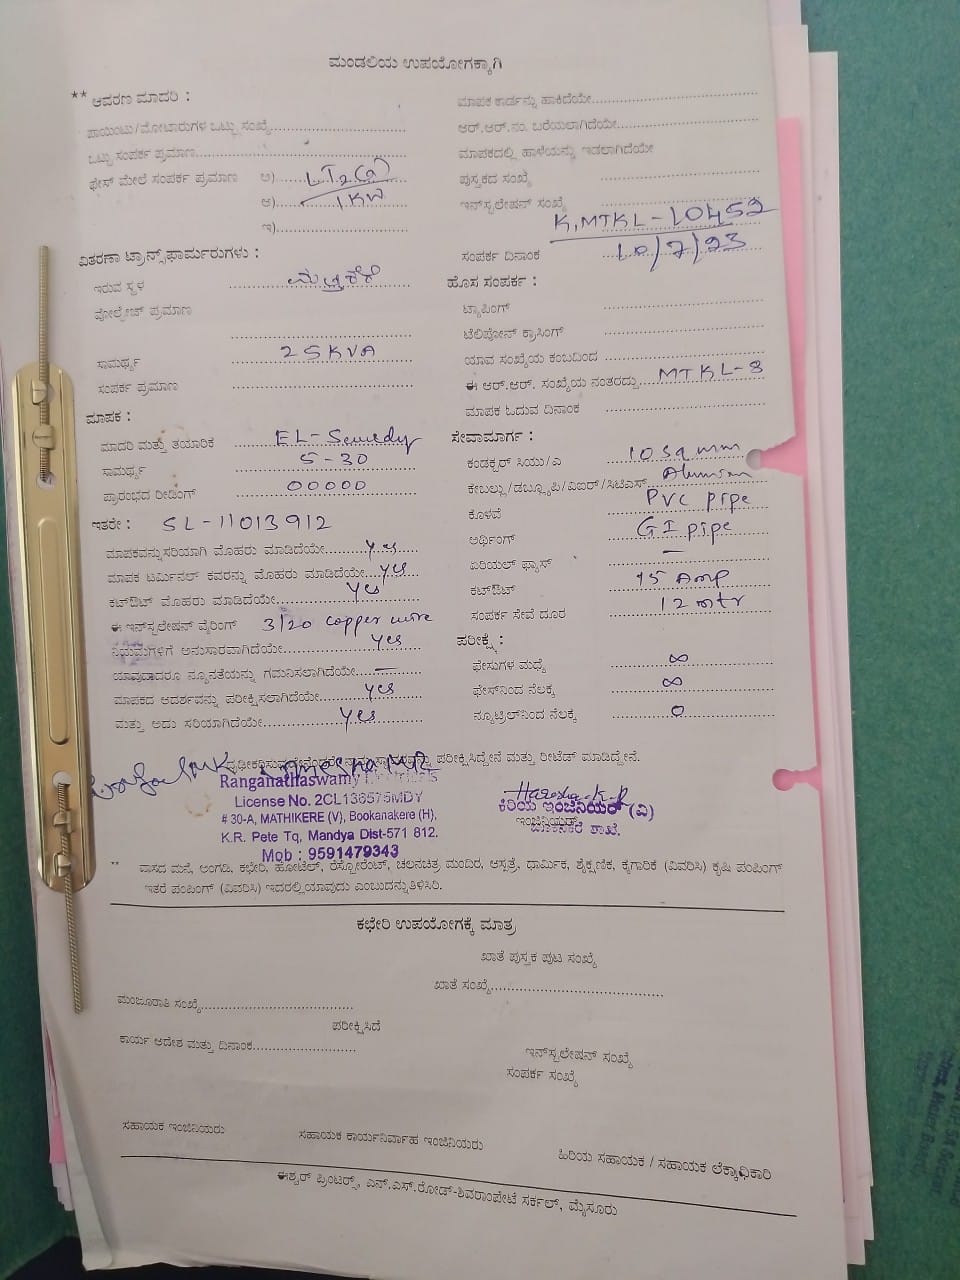 ಮಂಡಲಿಯ ಉಪಯೋಗಕ್ಕಾಗಿ
** ಆವರಣ ಮಾದರಿ :
ಪಾಯಿಂಟು/ಮೋಟಾರುಗಳ ಒಟ್ಟು ಸಂಖ್ಯೆ
ಒಟ್ಟು ಸಂಪರ್ಕ ಪ್ರಮಾಣ
ಫೇಸ್ ಮೇಲೆ ಸಂಪರ್ಕ ಪ್ರಮಾಣ ಅ) LT2(a)
ಆ) 1KW
ಇ)
ವಿತರಣಾ ಟ್ರಾನ್ಸ್‌ಫಾರ್ಮರುಗಳು :
ಇರುವ ಸ್ಥಳ
ವೋಲ್ಟೇಜ್ ಪ್ರಮಾಣ
ಸಾಮರ್ಥ್ಯ 25KVA
ಸಂಪರ್ಕ ಪ್ರಮಾಣ
ಮಾಪಕ :
ಮಾದರಿ ಮತ್ತು ತಯಾರಿಕೆ EL-
ಸಾಮರ್ಥ್ಯ 5-30
ಪ್ರಾರಂಭದ ರೀಡಿಂಗ್ 00000
ಇತರೇ : SL-11013912
ಮಾಪಕವನ್ನು ಸರಿಯಾಗಿ ಮೊಹರು ಮಾಡಿದೆಯೇ yes
ಮಾಪಕ ಟರ್ಮಿನಲ್ ಕವರನ್ನು ಮೊಹರು ಮಾಡಿದೆಯೇ yes
ಕಟ್‌ಔಟ್ ಮೊಹರು ಮಾಡಿದೆಯೇ yes
ಈ ಇನ್‌ಸ್ಟಲೇಷನ್ ವೈರಿಂಗ್ 3/20 copper wire
ನಿಯಮಗಳಿಗೆ ಅನುಸಾರವಾಗಿದೆಯೇ yes
ಯಾವುದಾದರೂ ನ್ಯೂನತೆಯನ್ನು ಗಮನಿಸಲಾಗಿದೆಯೇ —
ಮಾಪಕದ ಆದರ್ಶವನ್ನು ಪರೀಕ್ಷಿಸಲಾಗಿದೆಯೇ yes
ಮತ್ತು ಅದು ಸರಿಯಾಗಿದೆಯೇ yes
ಮಾಪಕ ಕಾರ್ಡನ್ನು ಹಾಕಿದೆಯೇ
ಆರ್.ಆರ್.ನಂ. ಬರೆಯಲಾಗಿದೆಯೇ
ಮಾಪಕದಲ್ಲಿ ಹಾಳೆಯನ್ನು ಇಡಲಾಗಿದೆಯೇ
ಪುಸ್ತಕದ ಸಂಖ್ಯೆ
ಇನ್‌ಸ್ಟಲೇಷನ್ ಸಂಖ್ಯೆ K,MTKL-10452
ಸಂಪರ್ಕ ದಿನಾಂಕ 10/7/23
ಹೊಸ ಸಂಪರ್ಕ :
ಟ್ಯಾಪಿಂಗ್
ಟೆಲಿಫೋನ್ ಕ್ರಾಸಿಂಗ್
ಯಾವ ಸಂಖ್ಯೆಯ ಕಂಬದಿಂದ
ಈ ಆರ್.ಆರ್. ಸಂಖ್ಯೆಯ ನಂತರದ್ದು MTKL-8
ಮಾಪಕ ಓದುವ ದಿನಾಂಕ
ಸೇವಾಮಾರ್ಗ :
ಕಂಡಕ್ಟರ್ ಸಿಯು/ಎ 10 sq mm
ಕೇಬಲ್ಲು/ಡಬ್ಲ್ಯೂಪಿ/ವಿಐಆರ್/ಸಿಟಿಎಸ್
ಕೊಳವೆ PVC pipe
ಅರ್ಥಿಂಗ್ GI pipe
ಏರಿಯಲ್ ಫ್ಯೂಸ್ —
ಕಟ್‌ಔಟ್ 15 Amp
ಸಂಪರ್ಕ ಸೇವೆ ದೂರ 12 mtr
ಪರೀಕ್ಷೆ :
ಫೇಸುಗಳ ಮಧ್ಯೆ ∞
ಫೇಸ್‌ನಿಂದ ನೆಲಕ್ಕೆ ∞
ನ್ಯೂಟ್ರಲ್‌ನಿಂದ ನೆಲಕ್ಕೆ 0
ಪರೀಕ್ಷಿಸಿದ್ದೇನೆ ಮತ್ತು ರೀಟೆಡ್ ಮಾಡಿದ್ದೇನೆ.
Ranganathaswamy Electricals
License No. 2CL136575MDY
# 30-A, MATHIKERE (V), Bookanakere (H),
K.R. Pete Tq, Mandya Dist-571 812.
Mob : 9591479343
ಕಿರಿಯ ಇಂಜಿನಿಯರ್ (ವಿ)
ಇಂಜಿನಿಯರ್
** ವಾಸದ ಮನೆ, ಅಂಗಡಿ, ಕಛೇರಿ, ಹೋಟೆಲ್, ರೆಸ್ಟೋರೆಂಟ್, ಚಲನಚಿತ್ರ ಮಂದಿರ, ಆಸ್ಪತ್ರೆ, ಧಾರ್ಮಿಕ, ಶೈಕ್ಷಣಿಕ, ಕೈಗಾರಿಕೆ (ವಿವರಿಸಿ) ಕೃಷಿ ಪಂಪಿಂಗ್
ಇತರೆ ಪಂಪಿಂಗ್ (ವಿವರಿಸಿ) ಇದರಲ್ಲಿ ಯಾವುದು ಎಂಬುದನ್ನು ತಿಳಿಸಿರಿ.
ಕಛೇರಿ ಉಪಯೋಗಕ್ಕೆ ಮಾತ್ರ
ಖಾತೆ ಪುಸ್ತಕ ಪುಟ ಸಂಖ್ಯೆ
ಖಾತೆ ಸಂಖ್ಯೆ
ಮಂಜೂರಾತಿ ಸಂಖ್ಯೆ
ಪರೀಕ್ಷಿಸಿದೆ
ಕಾರ್ಯ ಆದೇಶ ಮತ್ತು ದಿನಾಂಕ
ಇನ್‌ಸ್ಟಲೇಷನ್ ಸಂಖ್ಯೆ
ಸಂಪರ್ಕ ಸಂಖ್ಯೆ
ಸಹಾಯಕ ಇಂಜಿನಿಯರು
ಸಹಾಯಕ ಕಾರ್ಯನಿರ್ವಾಹ ಇಂಜಿನಿಯರು
ಹಿರಿಯ ಸಹಾಯಕ / ಸಹಾಯಕ ಲೆಕ್ಕಾಧಿಕಾರಿ
ಈಶ್ವರ್ ಪ್ರಿಂಟರ್ಸ್, ಎನ್.ಎಸ್.ರೋಡ್-ಶಿವರಾಂಪೇಟೆ ಸರ್ಕಲ್, ಮೈಸೂರು